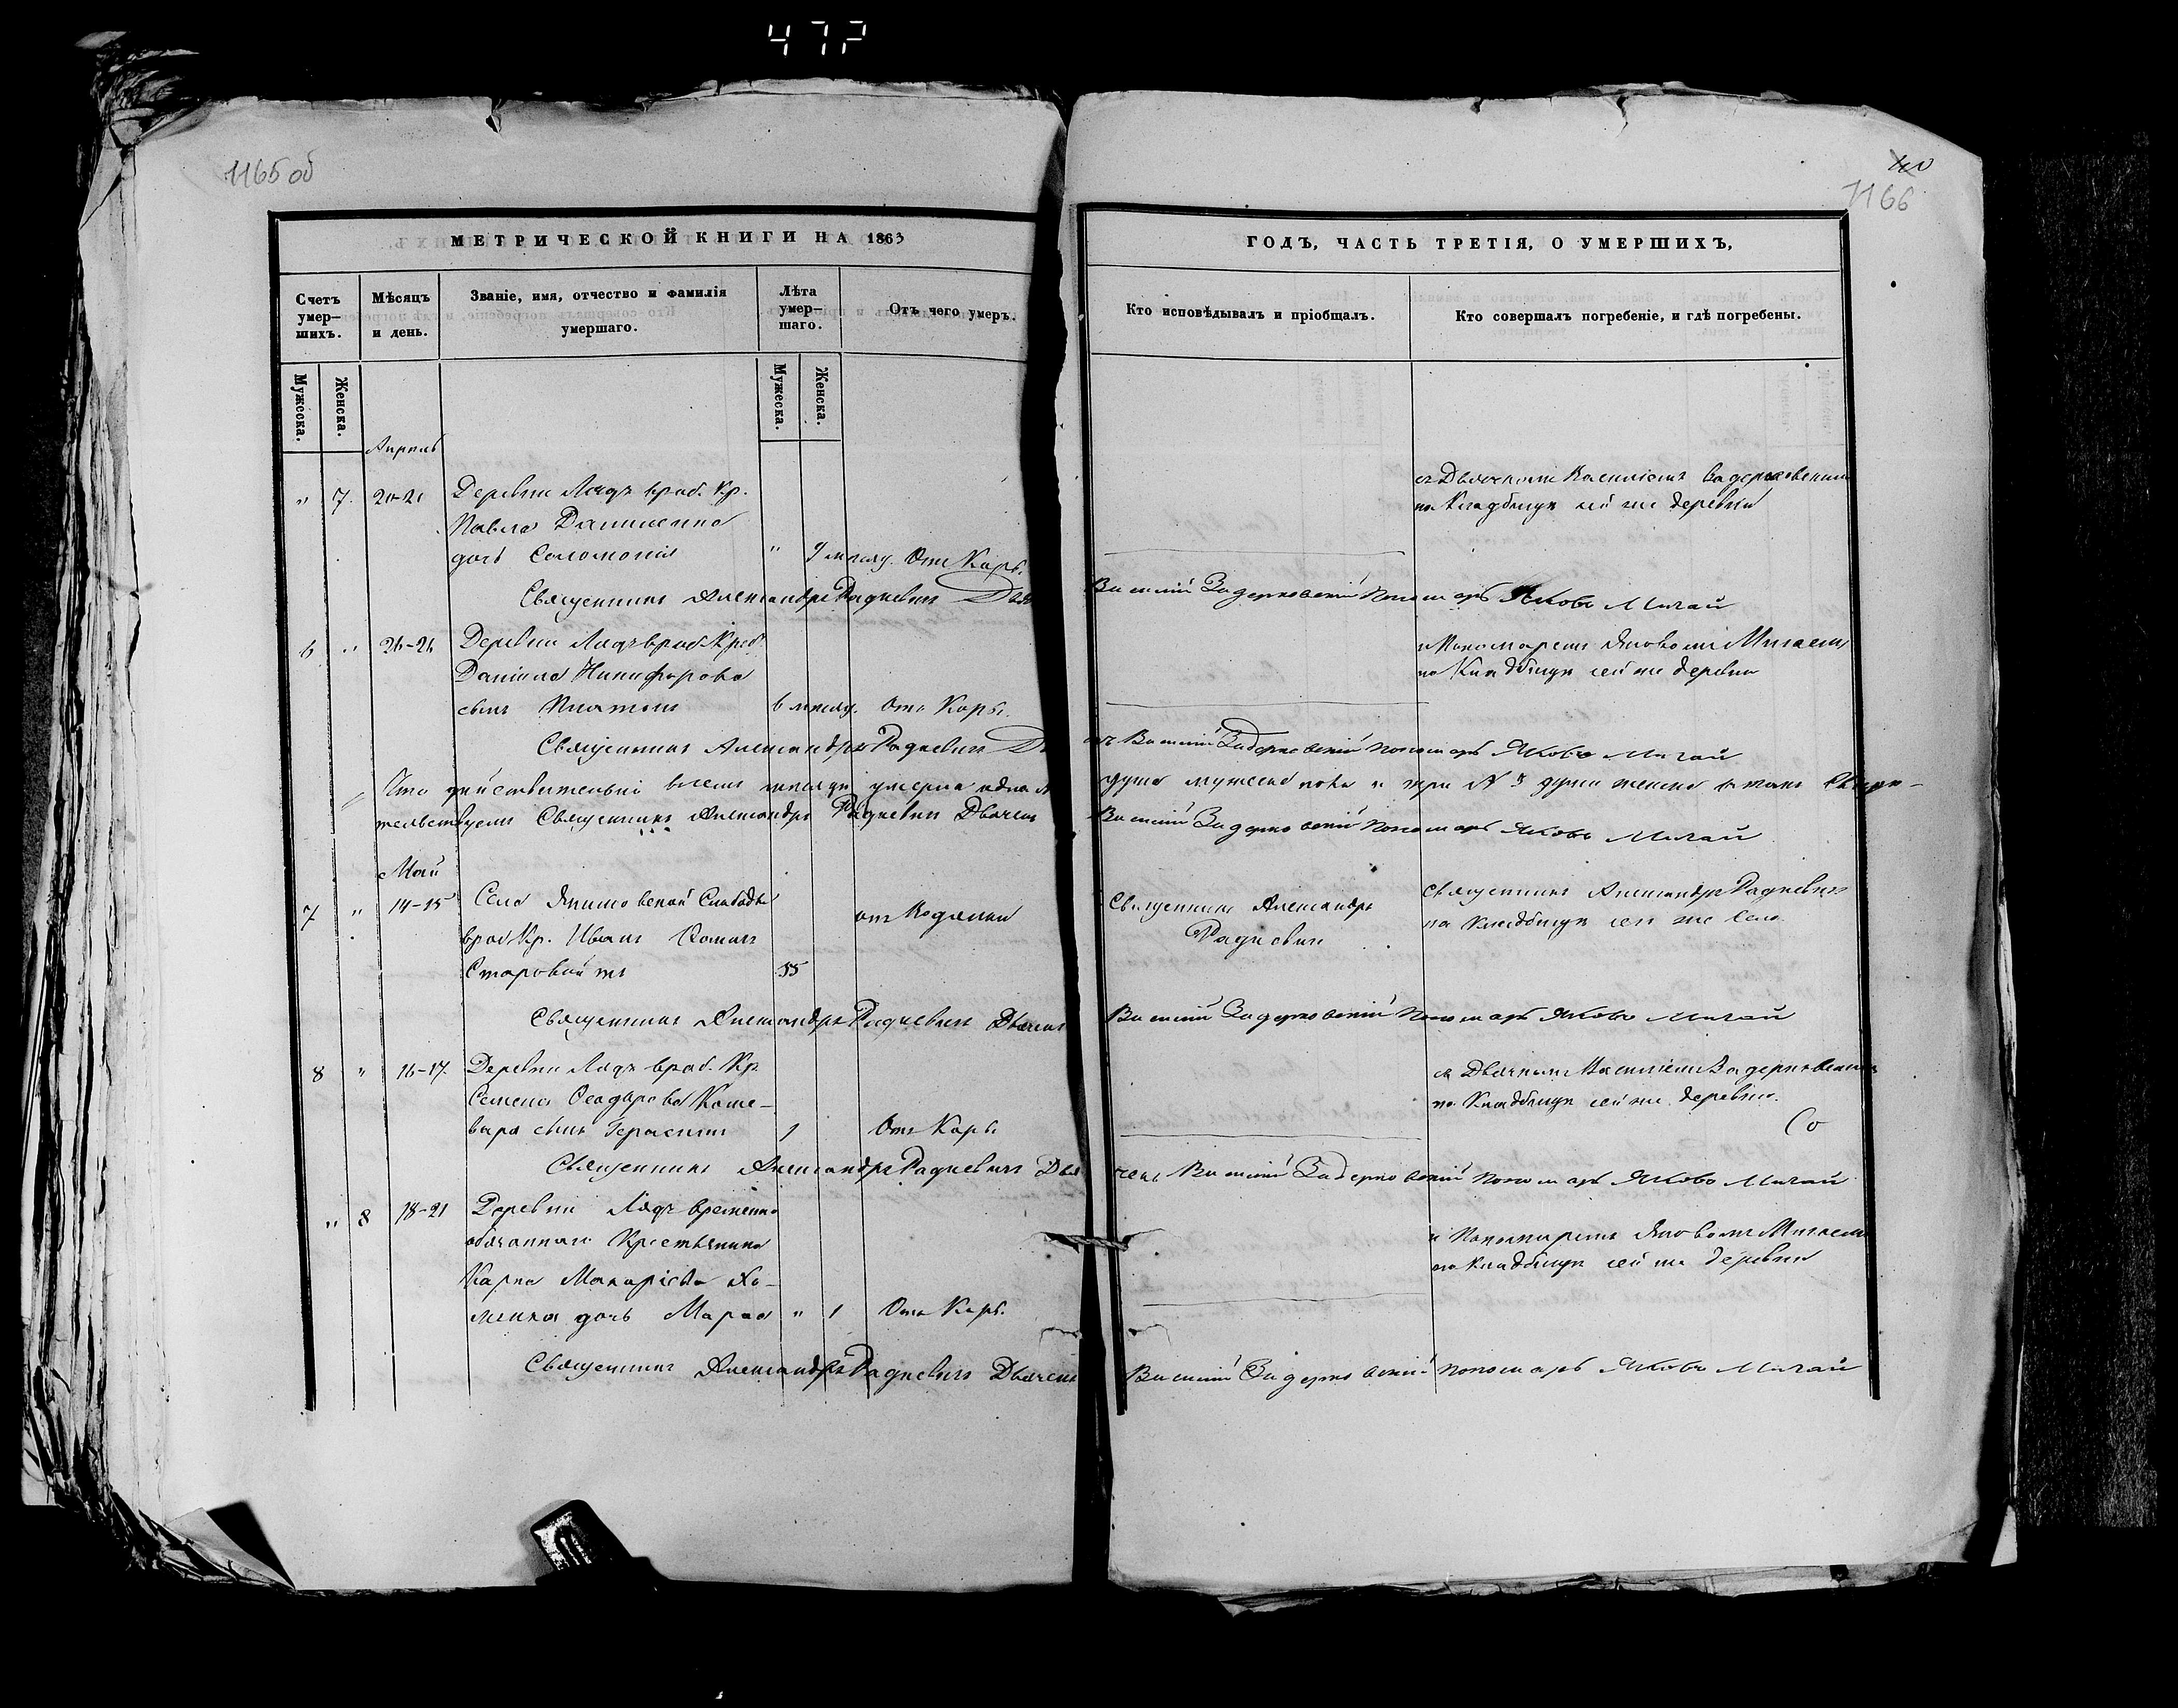 477
1165 об
40
1166
МЕТРИЧЕСКОЙ КНИГИ НА 1863
ГОДЪ, ЧАСТЬ ТРЕТІЯ, О УМЕРШИХЪ,
Счетъ умер-шихъ.
Мѣсяцъ и день.
Званіе, имя, отчество и фамилія умершаго.
Лѣта умер-шаго.
Отъ чего умеръ.
Кто исповѣдывалъ и пріобщалъ.
Кто совершалъ погребеніе, и гдѣ погребены.
Мужеска.
Женска.
Мужеска.
Женска.
Апрель
" 7. 20-21 Деревни Лядъ врѣоб. Кр.
Павла Даниленка
дочь Соломонія " 9 мѣсяц. Отъ Кори.
съ Дьячкомъ Василіемъ Задерковскимъ
на Кладбищѣ сей же деревни
Священникъ Александръ Радкевичъ Дья
Василій Задерковскій Пономарь Яковъ Мигай
6 " 26-26 Деревни Лядъ
Даніила Никифорова
сынъ Платонъ 6 мѣсяц. Отъ Кори.
и Пономаремъ Яковомъ Мигаемъ
на Кладбищѣ сей же деревни
Священникъ Александръ Радкевичъ Дь
Василій Задерковскій Пономарь Яковъ Мигай
Что дѣйствительно всемъ мѣсяцѣ умерла одна
душа мужеска пола и три № 3 души женска
тельствуемъ Священникъ Александръ Радкевичъ Дьячекъ
Василій Задерковскій Пономарь Яковъ Мигай
Май
7 " 14-15 Села Слободы
Кр. Иванъ
Старовойтъ 55
отъ Водянки
Священникъ Александръ
Радкевичъ
Священникъ Александръ Радкевичъ
на Кладбищѣ сего же Села
Священникъ Александръ Радкевичъ Дьячекъ
Василій Задерковскій Пономарь Яковъ Мигай
8 " 16-17. Деревни Лядъ Кр.
Семена Феодорова Коше-
вара сынъ Герасимъ 1 Отъ Кори
съ Дьячкомъ Василіемъ Задерковскимъ
на Кладбищѣ сей же деревни.
Со
Священникъ Александръ Радкевичъ Дья
чекъ Василій Задерковскій Пономарь Яковъ Мигай
" 8 18-21 Деревни Лядъ временно
обязаннаго Крестьянина
Карпа Макаріева Хо-
менка дочь " 1 Отъ Кори.
и Пономаремъ Яковомъ Мигаемъ
на Кладбищѣ сей же деревни
Священникъ Александръ Радкевичъ Дьячекъ
Василій Задерковскій Пономарь Яковъ Мигай